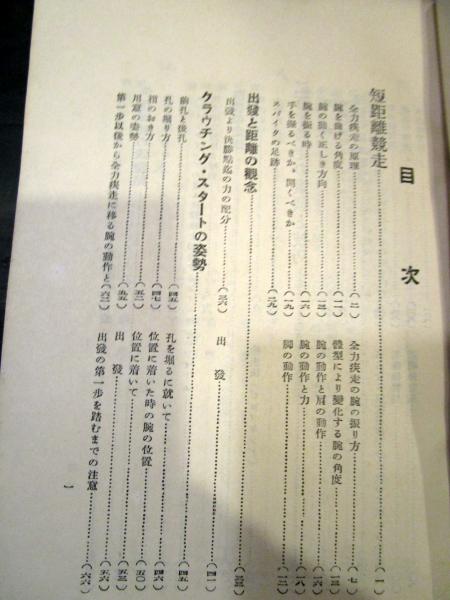 目次
短距離競走……(一)
全力疾走の原理……(一)
全力疾走の腕の振り方……(七)
腕を曲げる角度……(一一)
體型により變化する腕の角度……(一三)
腕の動く正しき方向……(一三)
腕の動作と肩の動作……(一六)
腕を振る時……(一六)
腕の動作と力……(一八)
手を握るべきか、開くべきか……(一九)
脚の動作
スパイクの足跡……(二九)
出發と距離の觀念……(三三)
出發より決勝點迄の力の配分……(三六)
出發
クラウチング・スタートの姿勢……(四一)
前孔と後孔……(四五)
孔を掘るに就いて……(四五)
孔の掘り方……(四七)
位置に着いた時の腕の位置……(四六)
指のおき方
位置に着いて……(五〇)
用意の姿勢……(五二)
出發……(五三)
出發……(五六)
第一歩以後から全力疾走に移る腕の動作と……(六二)
出發の第一歩を踏むまでの注意……(六六)
一